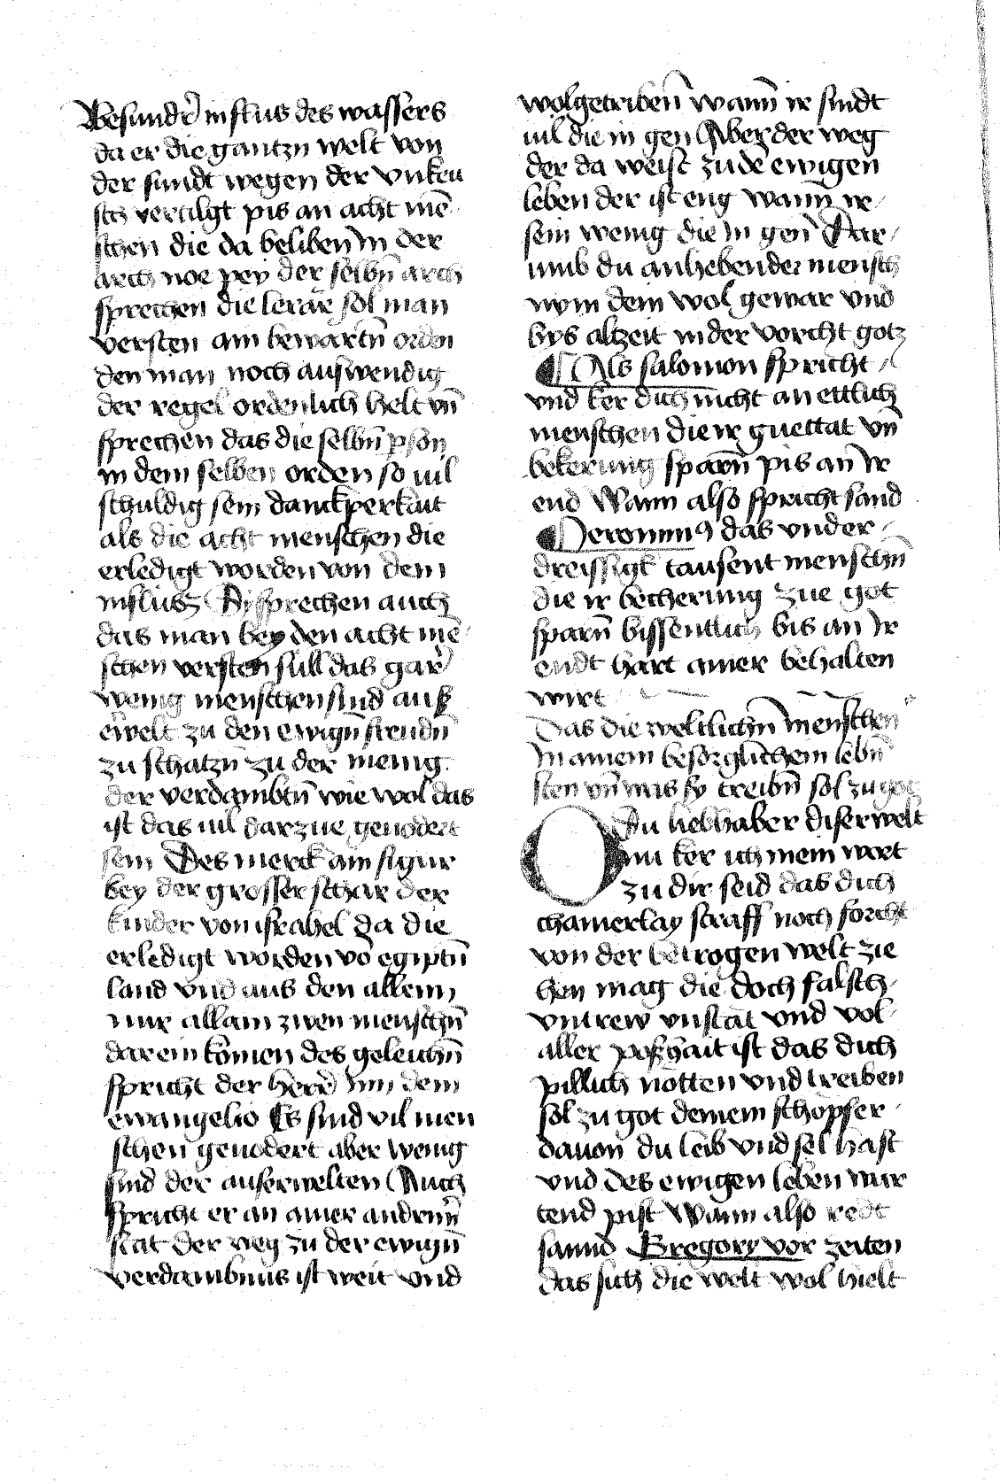 Besundr̄ in flus des wassers
da er die gantzn welt von
der sundt wegen der vnkeu
sch vertilgt pis an acht mē
schen die da beliben̄ in der
arch noe pey der selbn̄ arch
sprechen die lerär sol man
versten am bewartn̄ orden
den man noch auswendig
der regel ordenlich helt vn̄
sprechen das die selbn̄ pson
in dem selben orden so uil
schuldig sein danckperkait
als die acht menschen die
erledigt worden von dem
influs Dy sprechen auch
das man bey den acht mē
schen versten sull das gar
wenig menschen sind aus
erwelt zu den ewign̄ freudn̄
zu schatzn̄ zu der menig
der verdambtn̄ wie wol das
ist das uil darzue geuodert
sein Des merck ain figur
bey der grosser schar der
kinder von israhel da die
erledigt worden vō egiptn̄
land vnd aus den allein
nur allain zwen menschn̄
darein kömen des geleichn̄
spricht der herr̄ inn dem
ewangelio Es sind vil men
schen geuodert aber wenig
sind der auserwelten Auch
spricht er an ainer andrn̄
stat der weg zu der ewign̄
verdambnus ist weit vnd
wolgetriben̄ wann̄ ir sindt
uil die in gen Aber der weg
der da weist zu dē ewigen
leben der ist eng wann̄ ir
sein wenig die in gen̄ Dar
umb du anhebender mensch
nym dein wol gewar vnd
bys altzeit in der vorcht gotz
Als salomon spricht
vnd ker dich nicht an ettlich
menschen die ir guettat vn̄
bekerung sparn̄ pis an ir
end Wann also spricht sand
Jeronimus das vnder
dreissigk tausent menschn̄
die ir becherung zue got
sparn̄ bissentlich bis an ir
endt hart ainer behalten
wirt
Das die weltlichn̄ menschen
in ainem besorglichem lebn̄
sten vn̄ was sy treibn̄ sol zu got
O du liebhaber diser welt
nu ker ich mein wort
zu dir seid das dich
chainerlay straff noch forcht
von der betrogen welt zie
hen mag die doch falsch
vntrew vnstät vnd vol
aller poszhait ist das dich
pillich nötten vnd treiben
sol zu got deinem schöpfer
dauon du leib vnd sel hast
vnd des ewigen leben war
tend pist Wann also redt
sannd Gregory vor zeiten
das sich die welt wol hielt